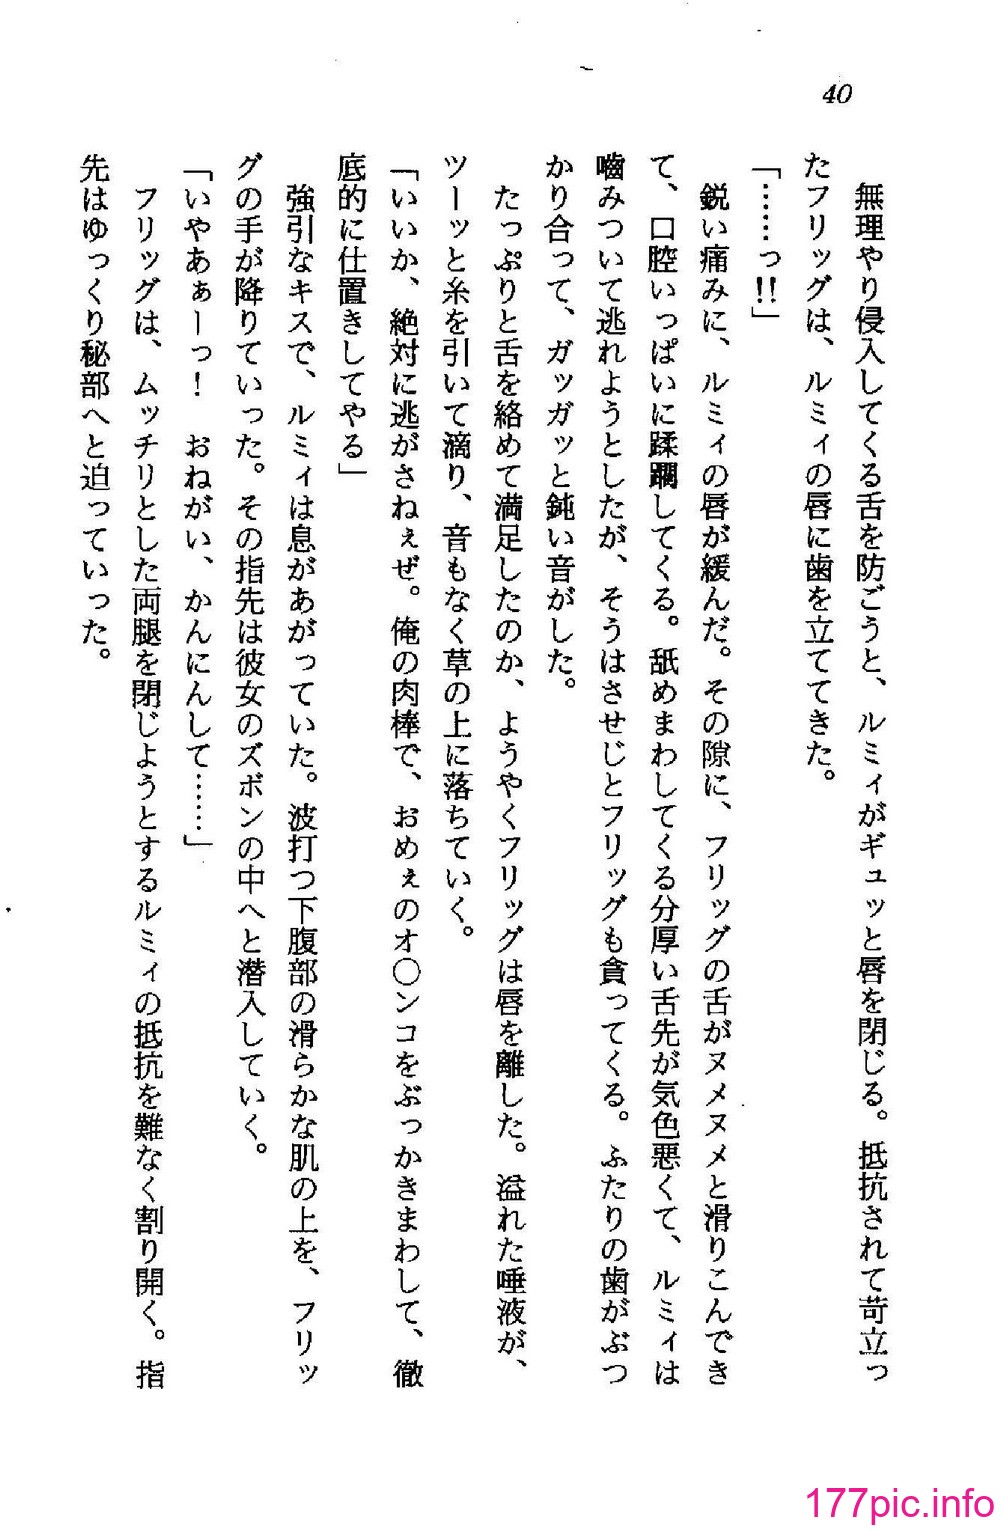 40
無理やり侵入してくる舌を防ごうと、ルミィがギュッと唇を閉じる。抵抗されて苛立っ
たフリッグは、ルミィの唇に歯を立ててきた。
「……っ!!」
鋭い痛みに、ルミィの唇が緩んだ。その隙に、フリッグの舌がヌメヌメと滑りこんでき
て、口腔いっぱいに蹂躙してくる。舐めまわしてくる分厚い舌先が気色悪くて、ルミィは
嚙みついて逃れようとしたが、そうはさせじとフリッグも貪ってくる。ふたりの歯がぶつ
かり合って、ガッガッと鈍い音がした。
たっぷりと舌を絡めて満足したのか、ようやくフリッグは唇を離した。溢れた唾液が、
ツーッと糸を引いて滴り、音もなく草の上に落ちていく。
「いいか、絶対に逃がさねぇぜ。俺の肉棒で、おめぇのオ〇ンコをぶっかきまわして、徹
底的に仕置きしてやる」
強引なキスで、ルミィは息があがっていた。波打つ下腹部の滑らかな肌の上を、フリッ
グの手が降りていった。その指先は彼女のズボンの中へと潜入していく。
「いやあぁーっ！　おねがい、かんにんして……」
フリッグは、ムッチリとした両腿を閉じようとするルミィの抵抗を難なく割り開く。指
先はゆっくり秘部へと迫っていった。
177pic.info